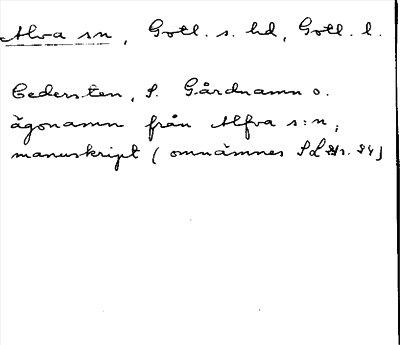 Alva sn, Gotl. s. hd, Gotl. l.
Cedersten, S. Gårdnamn o.
ägonamn från Alfva s:n,
manuskript (omnämnes SL 24)